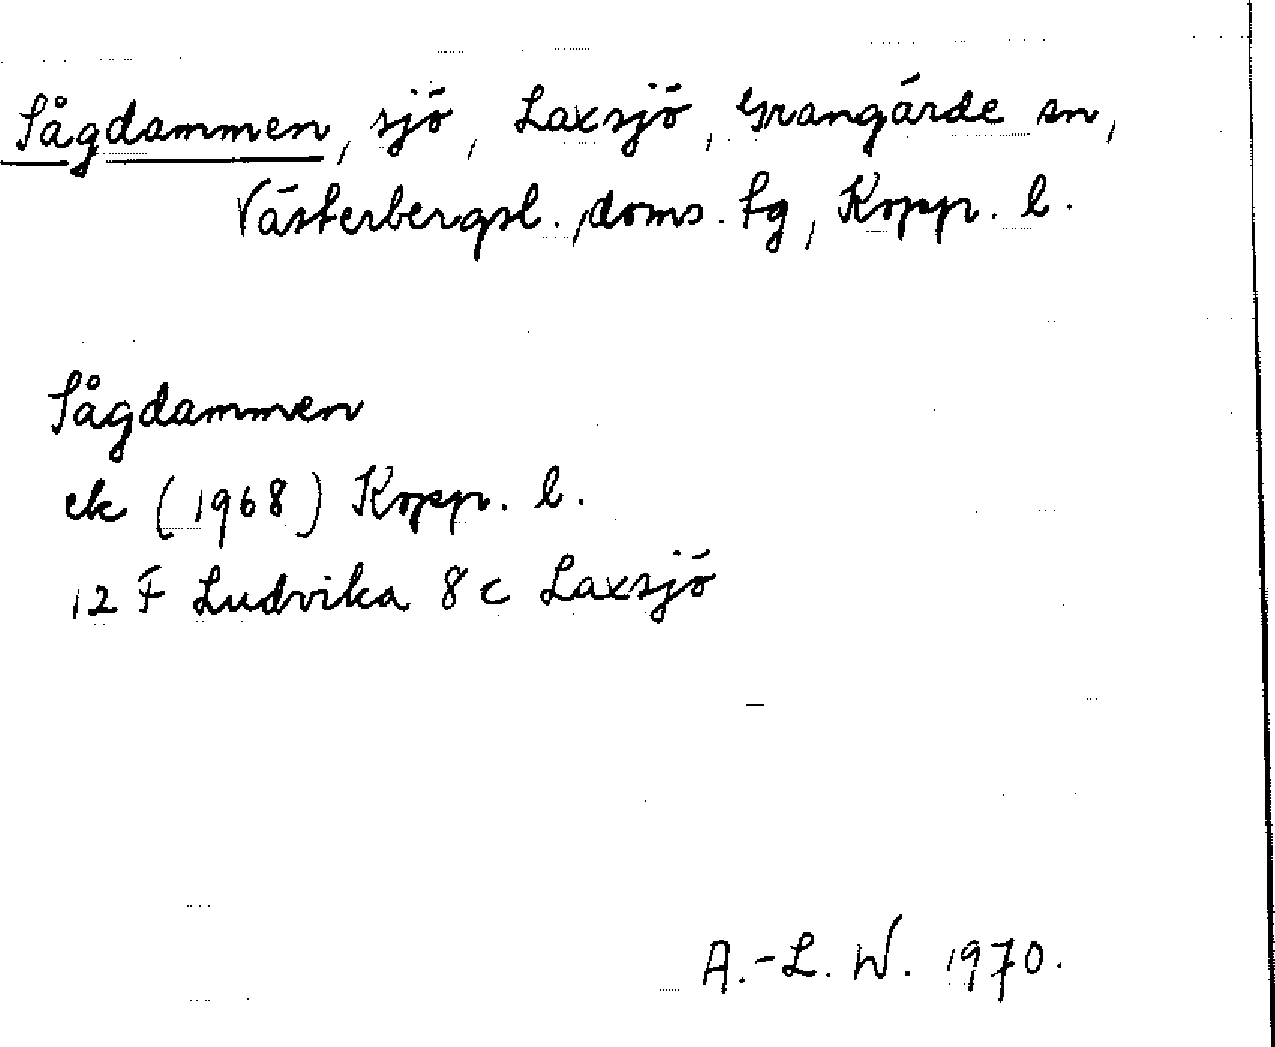 Sågdammen, sjö, Laxsjö, Grangärde sn,
Västerbergsl., doms. tg, Kopp. l.
Sågdammen
ek (1968) Kopp. l.
12 F Ludvika 8 c Laxsjö
A.-L. W. 1970.